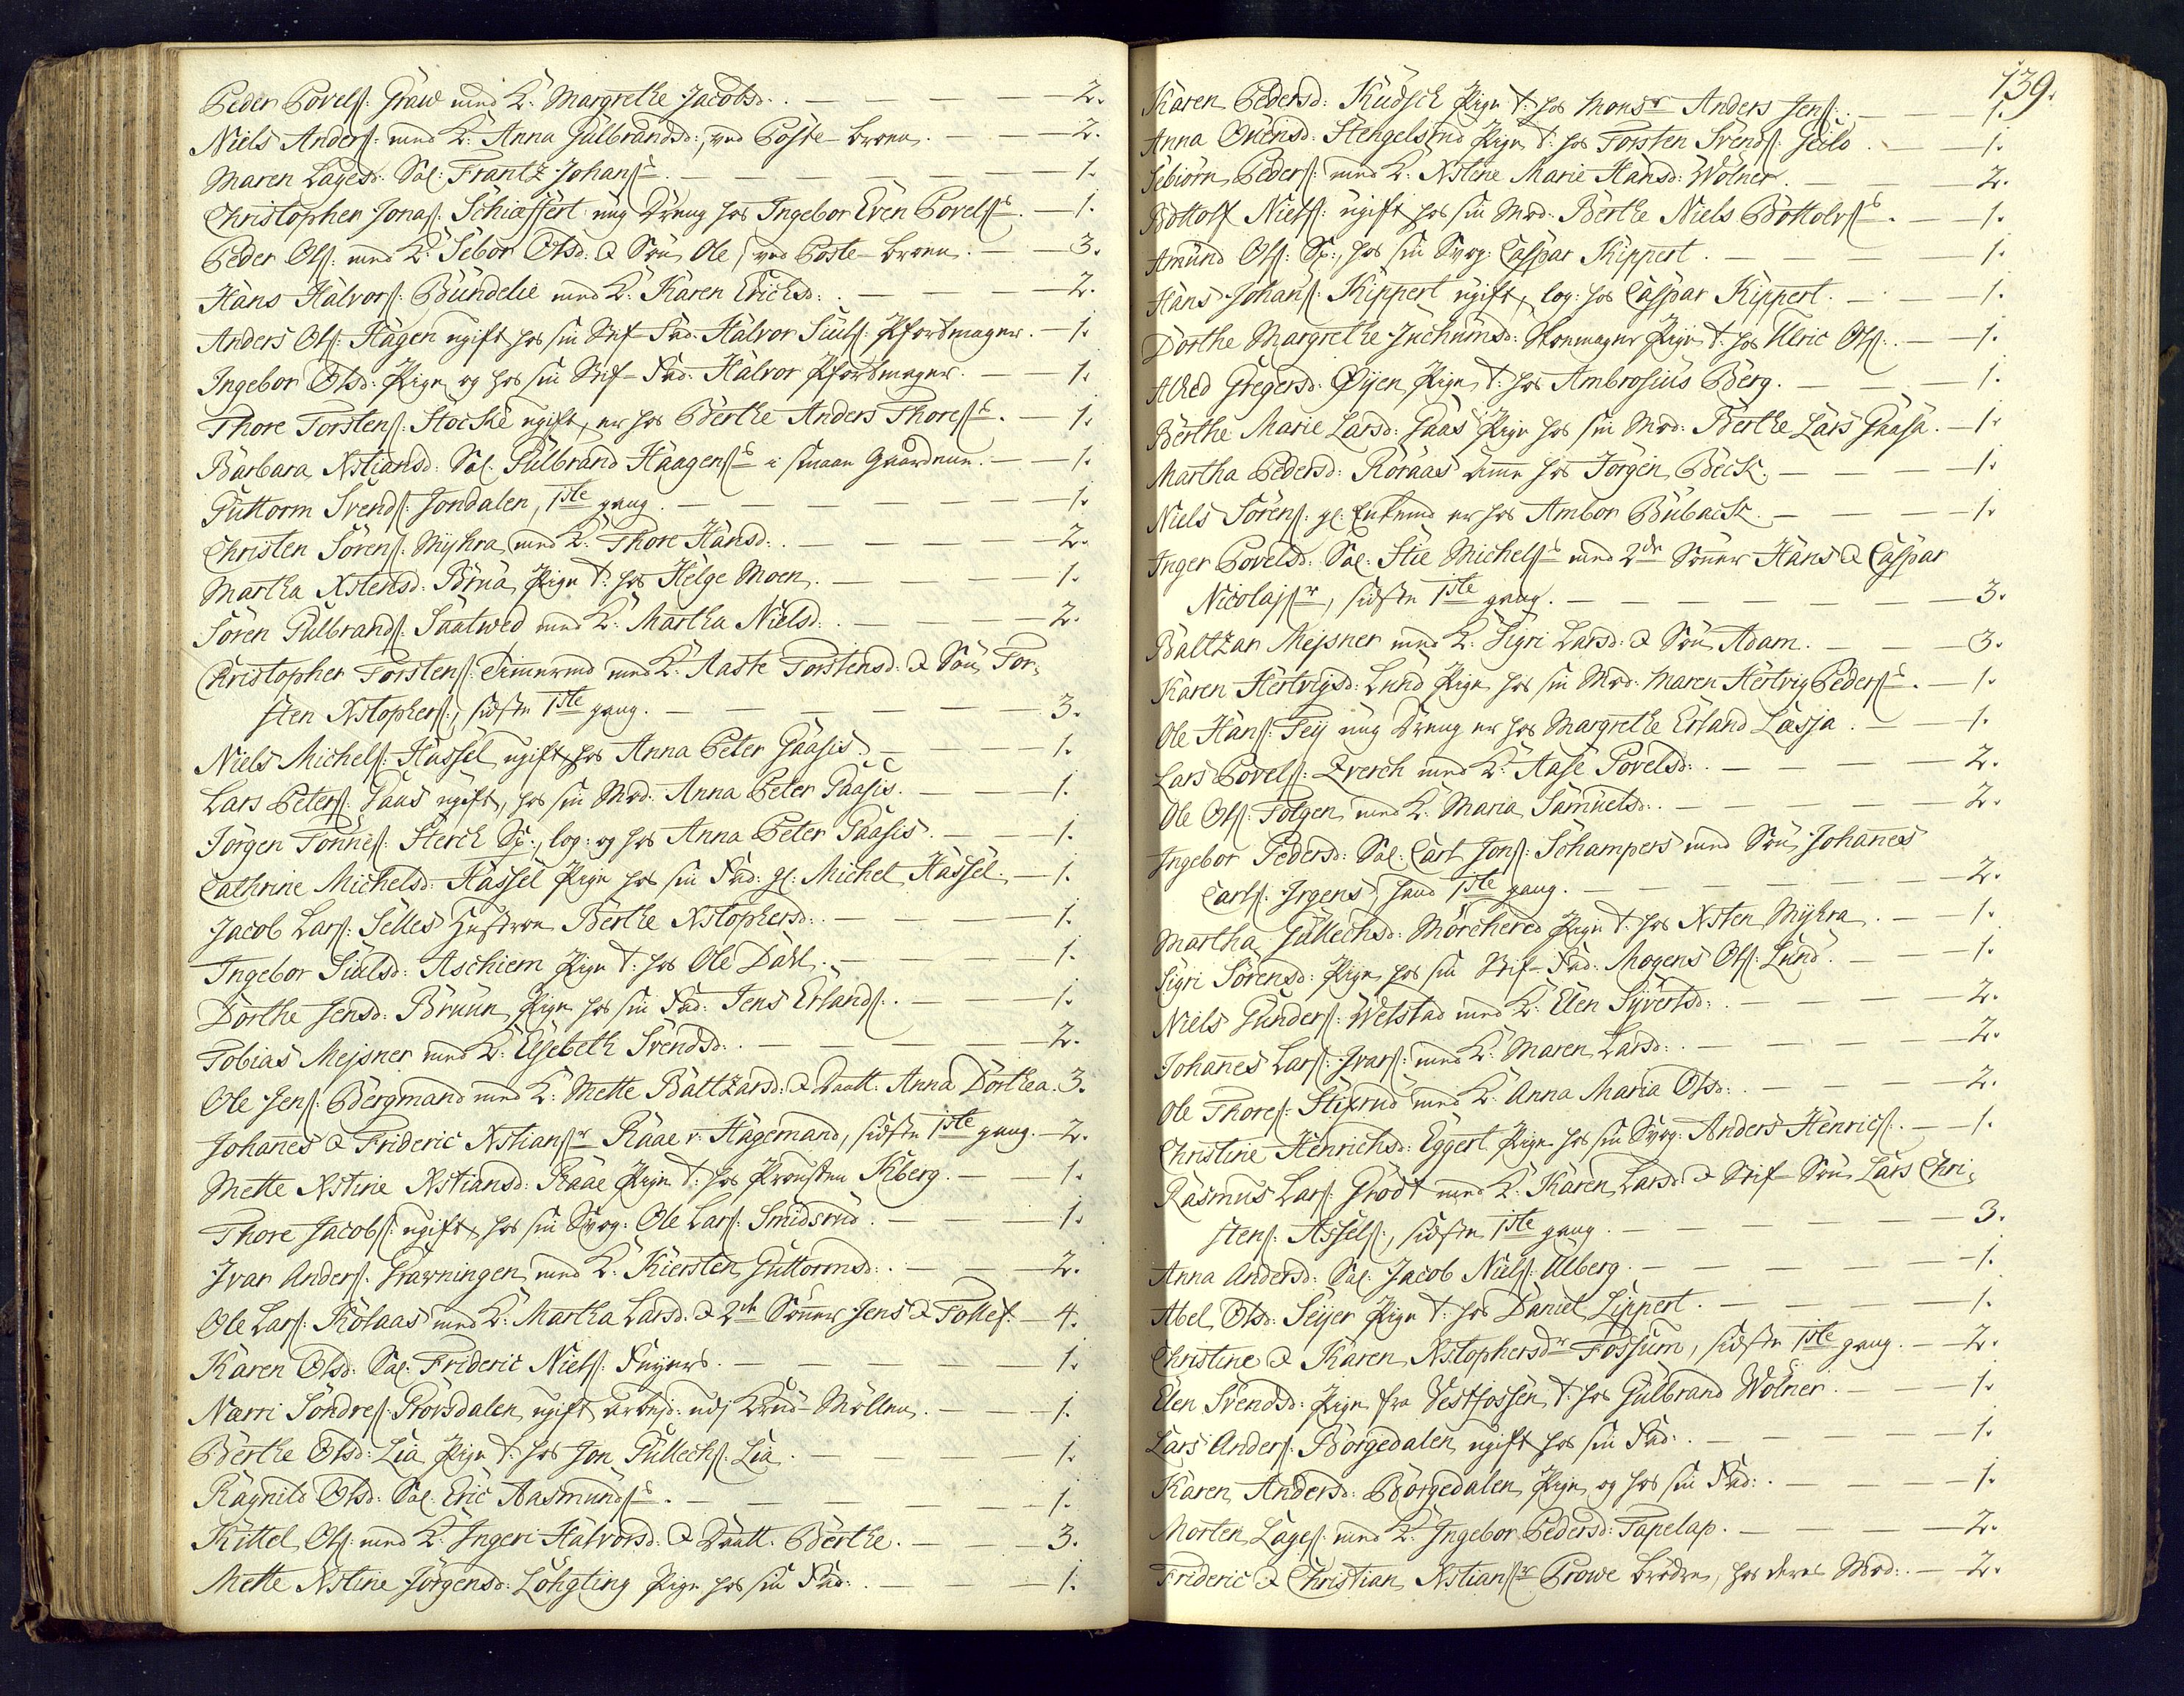 Peder Povels: Graw med K: Margrethe Jacobsd: . — 2.
Niels Anders: med K: Anna Gulbrandsd:, ved Poste-broen. — 2.
Maren Lagesd: Sal: Frantz Johans. — 1.
Christopher Jonas: Schiæffert ung Dreng hos Ingebor Even Povels. — 1.
Peder Ols: med K: Sebor Olsd: & Søn Ole, ved Poste-broen. — 3.
Hans Halvors: Bundelie med K: Karen Erichsd: . — 2.
Anders Ols: Hagen ugift hos sin Stif-Fad: Halvor Siuls: Pfortmager. — 1.
Ingebor Olsd: Pige og hos sin Stif-Fad: Halvor Pfortmager. — 1.
Thore Torstens: Stocke ugift, er hos Berthe Anders Thores. — 1.
Barbara Xstiansd: Sal: Gulbrand Haagens i smaae Gaardene. — 1.
Guttorm Svends: Jondalen, 1ste gang. — 1.
Christen Sörens: Myhra med K: Thore Hansd: . — 2.
Martha Xstensd: Brua Pige t: hos Helge Moen. — 1.
Sören Gulbrands: Saatwed med K: Martha Nielsd: . — 2.
Christopher Torstens: Timmermd med K: Aaste Torstensd: & Søn Tor-
sten Xstophers:, sidste 1ste gang. — 3.
Niels Michels: Hassel ugift hos Anna Peter Gaasis. — 1.
Lars Peters: Gaas ugift, hos sin Mod: Anna Peter Gaasis. — 1.
Jörgen Tönnes: Sterch Sp:, log: og hos Anna Peter Gaasis. — 1.
Cathrine Michelsd: Hassel Pige hos sin Fad: gl: Michel Hassel. — 1.
Jacob Lars: Selles Hustroe Berthe Xstophersd: . — 1.
Ingebor Siulsd: Aschiem Pige t: hos Ole Dahl. — 1.
Dorthe Jensd: Bruun Pige hos sin Fad: Jens Erlands: . — 1.
Tobias Mejsner med K: Elsebeth Svendsd: . — 2.
Ole Jens: Bergmand med K: Mette Baltzarsd: & Daatt: Anna Dorthea. 3.
Johanes & Frideric Xstians Raae v: Hagemand, sidste 1ste gang. — 2.
Mette Xstine Xstiansd: Raae Pige t: hos Provsten Kberg. — 1.
Thore Jacobs: ugift hos sin Svog: Ole Lars: Smidsrud. — 1.
Ivar Anders: Gravningen med K: Kiersten Guttormsd: . — 2.
Ole Lars: Kolaas med K: Martha Larsd: & 2de Sønner Jens & Tollef. — 4.
Karen Olsd: Sal: Frideric Niels: . — 1.
Narri Söndres: Grovsdalen ugift arbejd: udj Krud-Møllen. — 1.
Berthe Olsd: Lia Pige t: hos Jon Gullechs: Lia. — 1.
Ragnild Olsd: Sal: Eric Aasmunds. — 1.
Kittel Ols: med K: Ingeri Halvorsd: & Daatt: Berthe. — 3.
Mette Xstine Jörgensd: Löhgting Pige hos sin Fad: . — 1.
139.
Karen Pedersd: Kudsch Pige t: hos Monsr Anders Jens: . — 1.
Anna Ovensd: Stengelsrud Pige t: hos Torsten Svends: Geilo. — 1.
Sebiörn Peders: med K: Xstine Marie Hansd: Wölner. — 2.
Bottolf Niels: ugift hos sin Mod: Berthe Niels Bottolvs. — 1.
Amund Ols: Sp:, hos sin Svog: Caspar Kippert. — 1.
Hans Johans: Kippert ugift, log: hos Caspar Kippert. — 1.
Dorthe Margrethe Juchumsd: Skomager Pige t: hos Ulric Ols: . — 1.
Alhed Gregersd: Øijen Pige t: hos Ambrosius Berg. — 1.
Berthe Marie Larsd: Gaas Pige hos sin Mod: Berthe Lars Gaasa. — 1.
Martha Pedersd: Röraas Amme hos Jörgen Beck. — 1.
Niels Sörens: gl: Enkemd er hos Ambor Bubach. — 1.
Inger Povelsd: Sal: Stie Michels med 2de Sønner Hans & Caspar
Nicolajs, sidste 1ste gang. — 3.
Baltzar Mejsner med K: Sigri Larsd: & Søn Adam. — 3.
Karen Hertvigsd: Lund Pige hos sin Mod: Maren Hertvig Peders. — 1.
Ole Hans: Feij ung Dreng er hos Margrethe Erland Læsja. — 1.
Lars Povels: Qverch med K: Aase Povelsd: . — 2.
Ole Ols: Folgen med K: Maria Samuelsd: . — 2.
Ingebor Pedersd: Sal: Carl Jons: Schampers med Søn Johanes
Carls: Irgens, hand 1ste gang. — 2.
Martha Gullechsd: Mörchered Pige t: hos Xsten Myhra. — 1.
Sigri Sörensd: Pige hos sin Stif-Fad: Mogens Ols: Lund. — 1.
Niels Gunders: Welstad med K: Elen Syvertsd: . — 2.
Johanes Lars: Ivars: med K: Maren Larsd: . — 2.
Ole Thores: Stixrud med K: Anna Maria Olsd: . — 2.
Christine Henrichsd: Eggert Pige hos sin Svog: Anders Henrics: . — 1.
Rasmus Lars: Grödt med K: Karen Larsd: & Stif-Søn Lars Chri-
stens: Assels:, sidste 1ste gang. — 3.
Anna Andersd: Sal: Jacob Niels: Ulberg. — 1.
Abel Olsd: Seijer Pige t: hos Daniel Lippert. — 1.
Christine & Karen Xstophersdr Fossum, sidste 1ste gang. — 2.
Elen Svendsd: Pige fra Vestfossen t: hos Gulbrand Wölner. — 1.
Lars Anders: Borgedalen ugift hos sin Fad: . — 1.
Karen Andersd: Borgedalen Pige og hos sin Fad: . — 1.
Morten Lages: med K: Ingebor Pedersd: Tapelap. — 2.
Frideric & Christian Xstians Prowe brødre, hos deres Mod: . — 2.